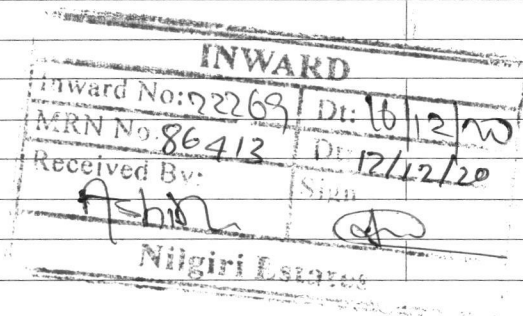 INWARD
Inward No: 22269 Dt: 16/12/20
MRN No. 86413 Dt: 12/12/20
Received By: Sign
Ashish
Nilgiri Estates